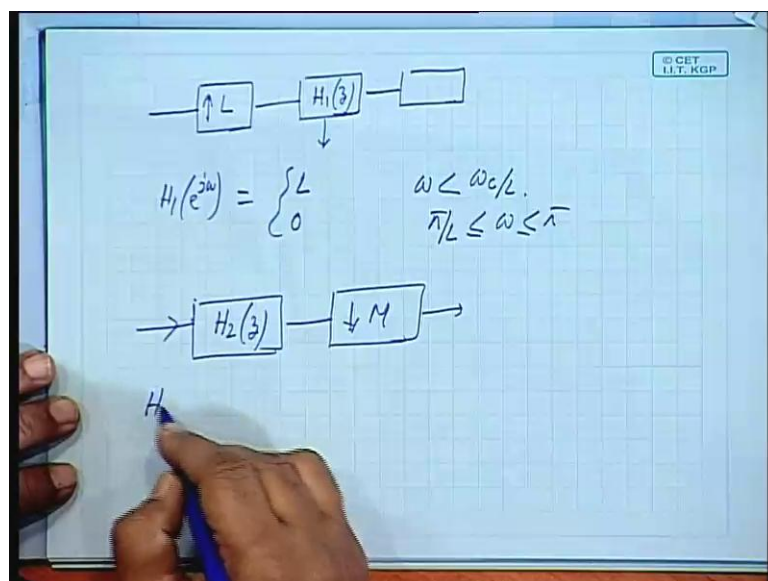 © CET
I.I.T. KGP
↑ L H₁(z)
H₁(e^{jω}) = { L ω < ωc/L.
0 π/L ≤ ω ≤ π
H₂(z) ↓ M
H